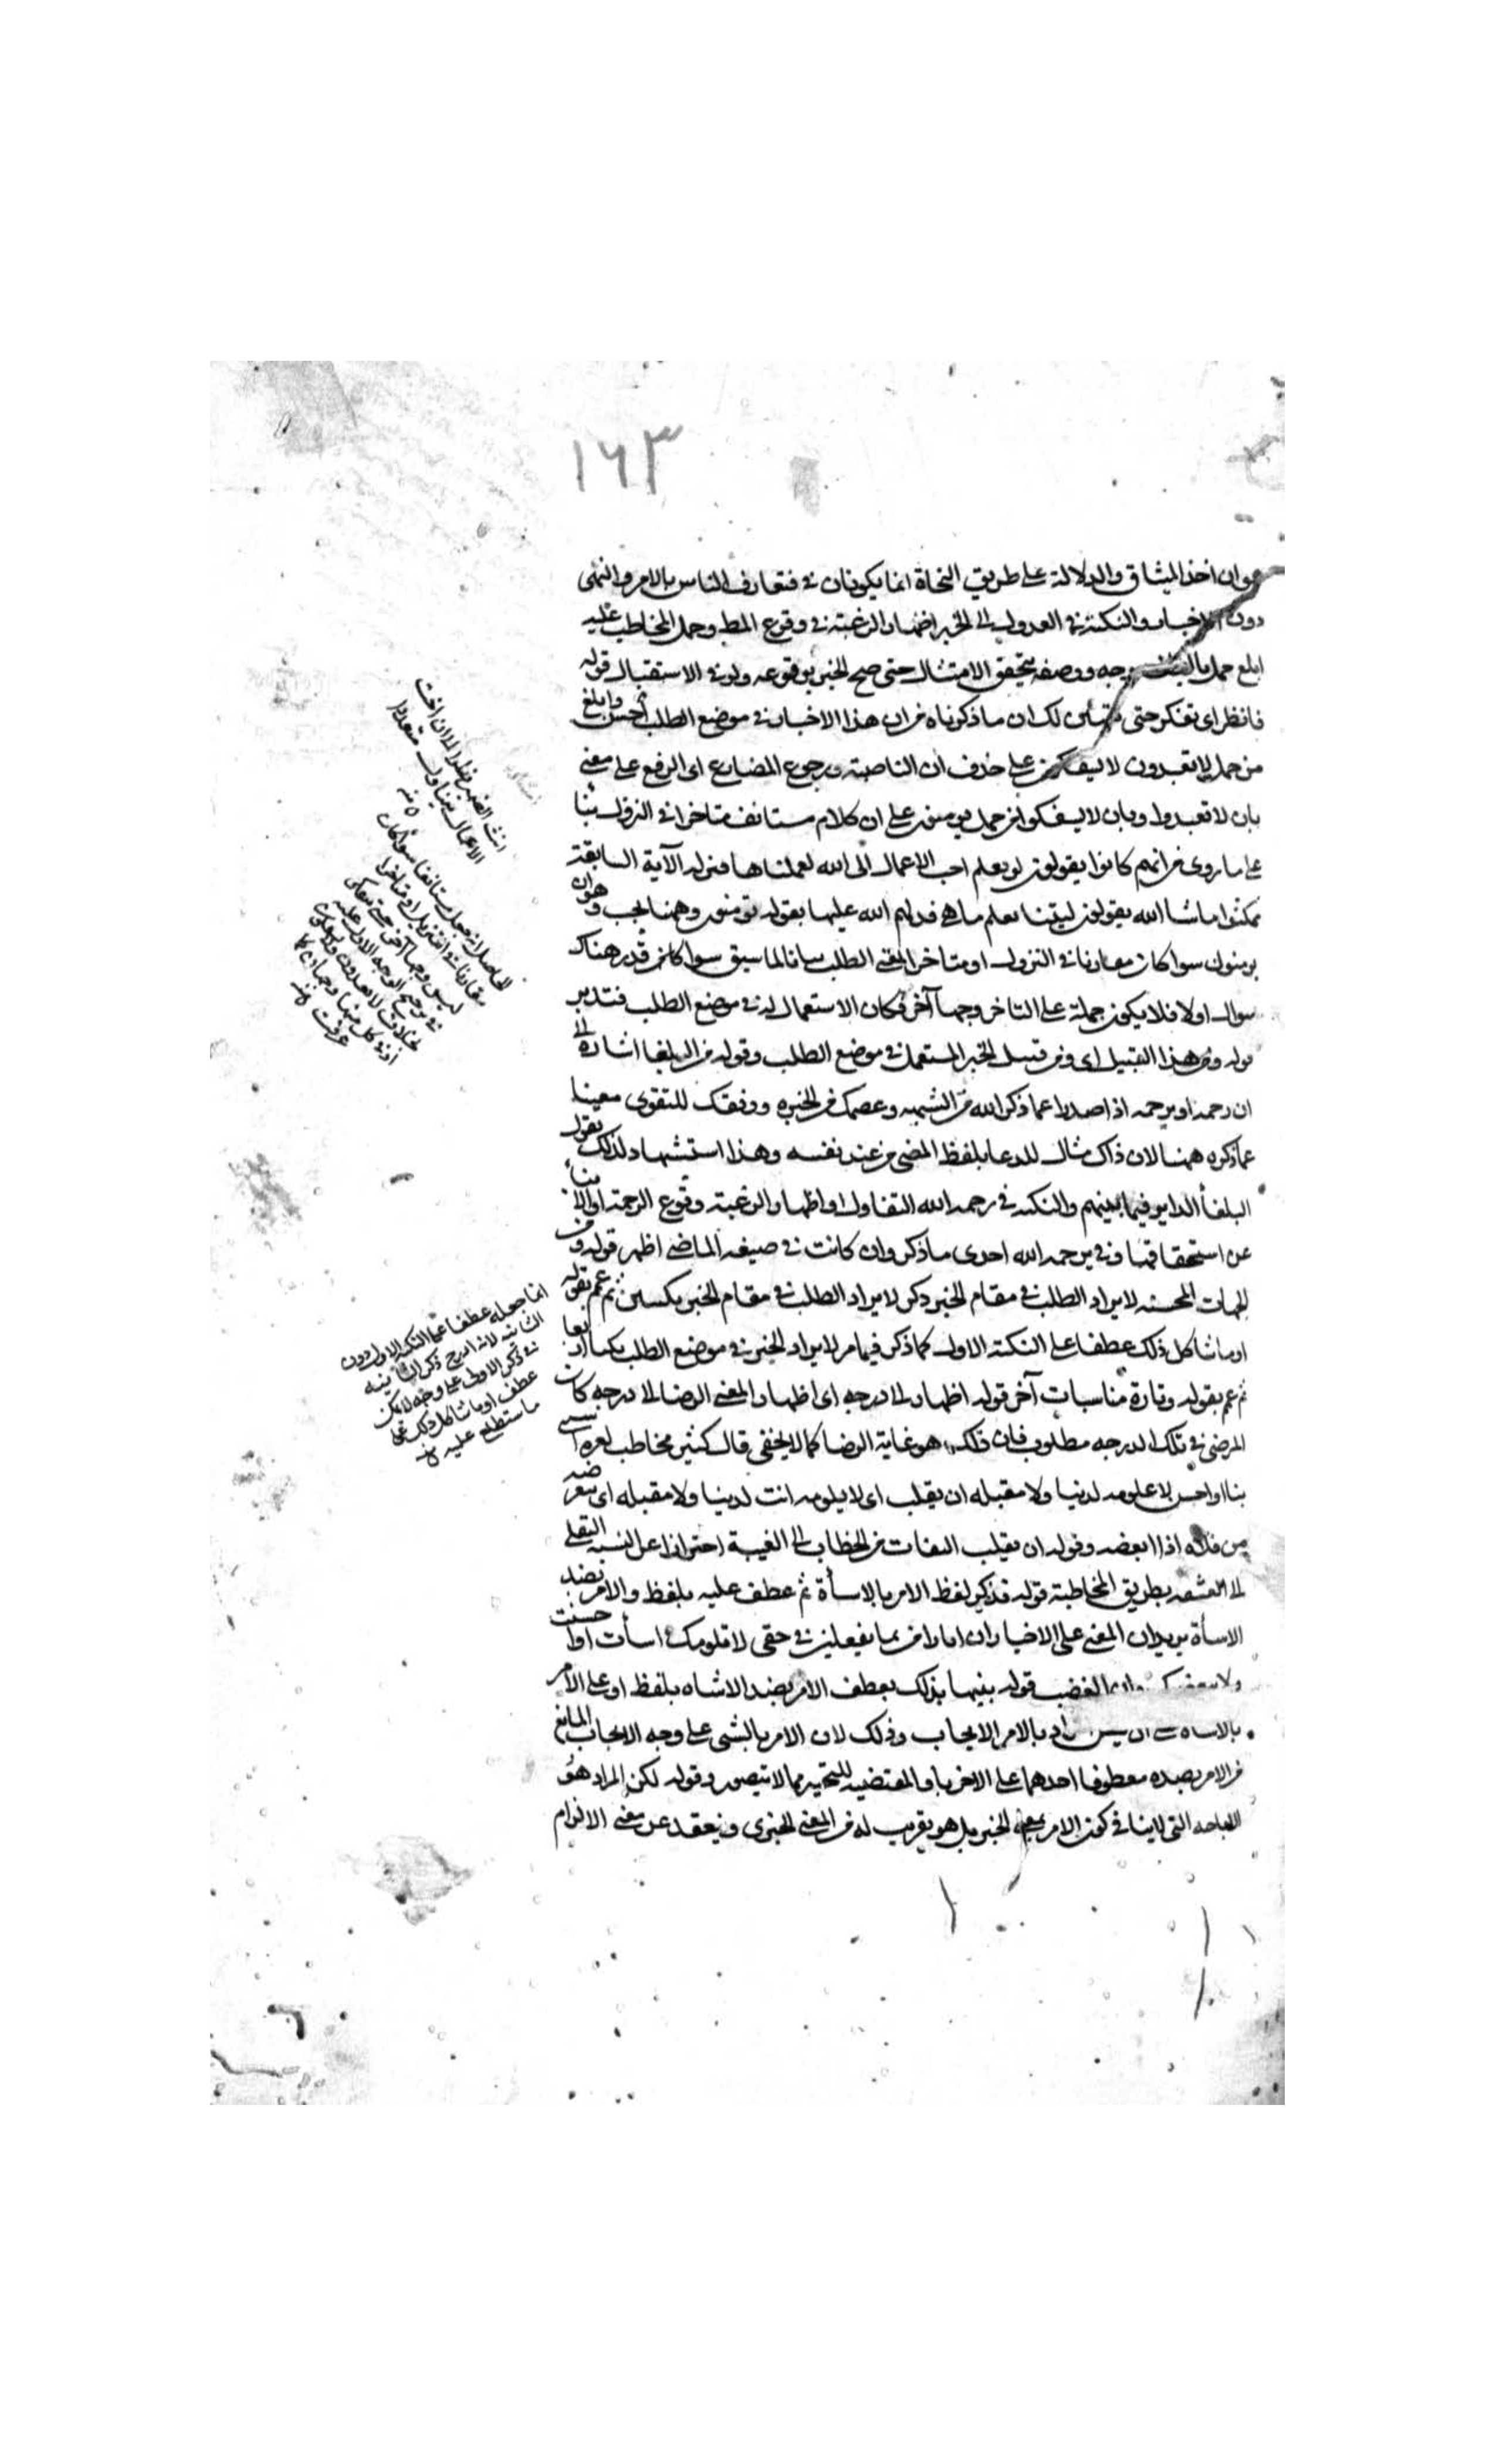 ١٦٣
هو ان اخذ الميثاق والدلالة على طريق النجاة انما يكونان فى متعارف الناس بالامر والنهى
دون الاخبار والنكتة فى العدول الى الخبر اظهار الرغبة فى وقوع المط وحمل المخاطب عليه
ابلغ حمل بالطف وجه ووصفه بتحقق الامتثال حتى صح الخبر بوقوعه ولو فى الاستقبال قوله
فانظر اى تفكر حتى يتبين لك ان ما ذكرناه من ان هذا الاخبار فى موضع الطلب احسن وابلغ
من حمل لا تعبدون لا تسفكون على حذف ان الناصبة ورجوع المضارع اى الرفع على معنى
بان لا تعبدوا وبان لا تسفكوا من حمل يومنون على ان كلام مستانف متاخرا فى النزول بنا
على ما روى من انهم كانوا يقولون لو نعلم احب الاعمال الى الله لعملناها فنزله الآية السابقة
فمكثوا ما شا الله يقولون ليتنا نعلم ما هى فدلهم الله عليها بقوله تومنون وههنا بحب وهو ان
يومنون سوا كان مقارنا فى النزول او متاخرا لمعنى الطلب بيانا لما سبق سوا كان قدر هناك
سوال اولا فلا يكون حملة على التاخر وجها آخر فكان الاستعمال له فى موضع الطلب فتدبر
قوله ومن هذا القبيل اى ومن قبيل الخبر المستعمل فى موضع الطلب وقوله من البلغا اشارة الى
ان رحمه او يرحمه اذا صدرا عما ذكر الله من الشبهه وعصمك من الحيرة ووفقك للتقوى معينا
عما ذكره ههنا لان ذاك مثال للدعا بلفظ المضى من عند نفسه وهذا استشهاد لذلك بقول
البلغا الداير فيما بينهم والنكتة فى رحمه الله التفاول او اظهار الرغبة وقوع الرحمة او الانبا
عن استحقاقها وفى يرحمه الله احدى ما ذكر وان كانت فى صيغة الماضى اظهر قوله ومن
الجهات المحسنه لايراد الطلب فى مقام الخبر ذكر لايراد الطلب فى مقام الخبر نكتتين ثم عمم بقوله
او ما شاكل ذلك عطفا على النكتة الاولى كما ذكر فيما مر لايراد الخبر فى موضع الطلب نكتا اربعا
ثم عم بقوله وتارة مناسبات آخر قوله اظهار الى درجه اى اظهار المعنى الرضا الى درجه كان
المرضى فى تلك الدرجه مطلوب فان ذلك هو غاية الرضا كما لا يخفى قال كثير مخاطب لعزه اسيى
بنا او احسنى لا ملومه لدينا ولا مقليه ان تقلت اى لا ملومه انت لدينا ولا مقليه اى مبغضه
من قلاه اذا ابغضه وقوله ان تقلت التفات من الخطاب الى الغيبة احترازا عن نسبة التقلى
الى العشقه بطريق المخاطبة قوله فذكر لفظ الامر بالاسأة ثم عطف عليه بلفظ والامر بضد
الاسأة يريد ان المعنى على الاخبار ان انا راض بما تفعلين فى حقى لا قلومك اسأت او احسنت
الغضب قوله بينها بذلك بعطف الامر بضد الاساه بلفظ او على الامر
بالاساه بالامر الايجاب وذلك لان الامر بالشى على وجه الايجاب المانع
من الامر بصده معطوفا احدهما على الاخر باو المقتضيه للتخيير مما لا يتصور وقوله لكن المراد هو
الاباحه التى لا ينافى كون الامر بمعنى الخبر بل هو تقريب له من المعنى الخبرى وتبعيد عن معنى الالزام
انث الضمير نظرا الى ان اخت
الاعمال يتناول متعددا
منه
الحاصل انه جعل مستانفا سوا كان
مقارنا فى التنزيل او متاخرا
ليس وجها آخر حتى يتمكن
فى ترجيح الوجه الاول عليه
بخلاف لا تعبدون ولا تسفكون
اذ فى كل منهما وجهان كما
عرفت منه
انما جعله عطفا على النكتة الاولى دون
الثانية لانه ادرج ذكر الثانية
فى ذكر الاولى على وجه لا يمكن
عطف او ما شاكل ذلك على
ما ستطلع عليه منه